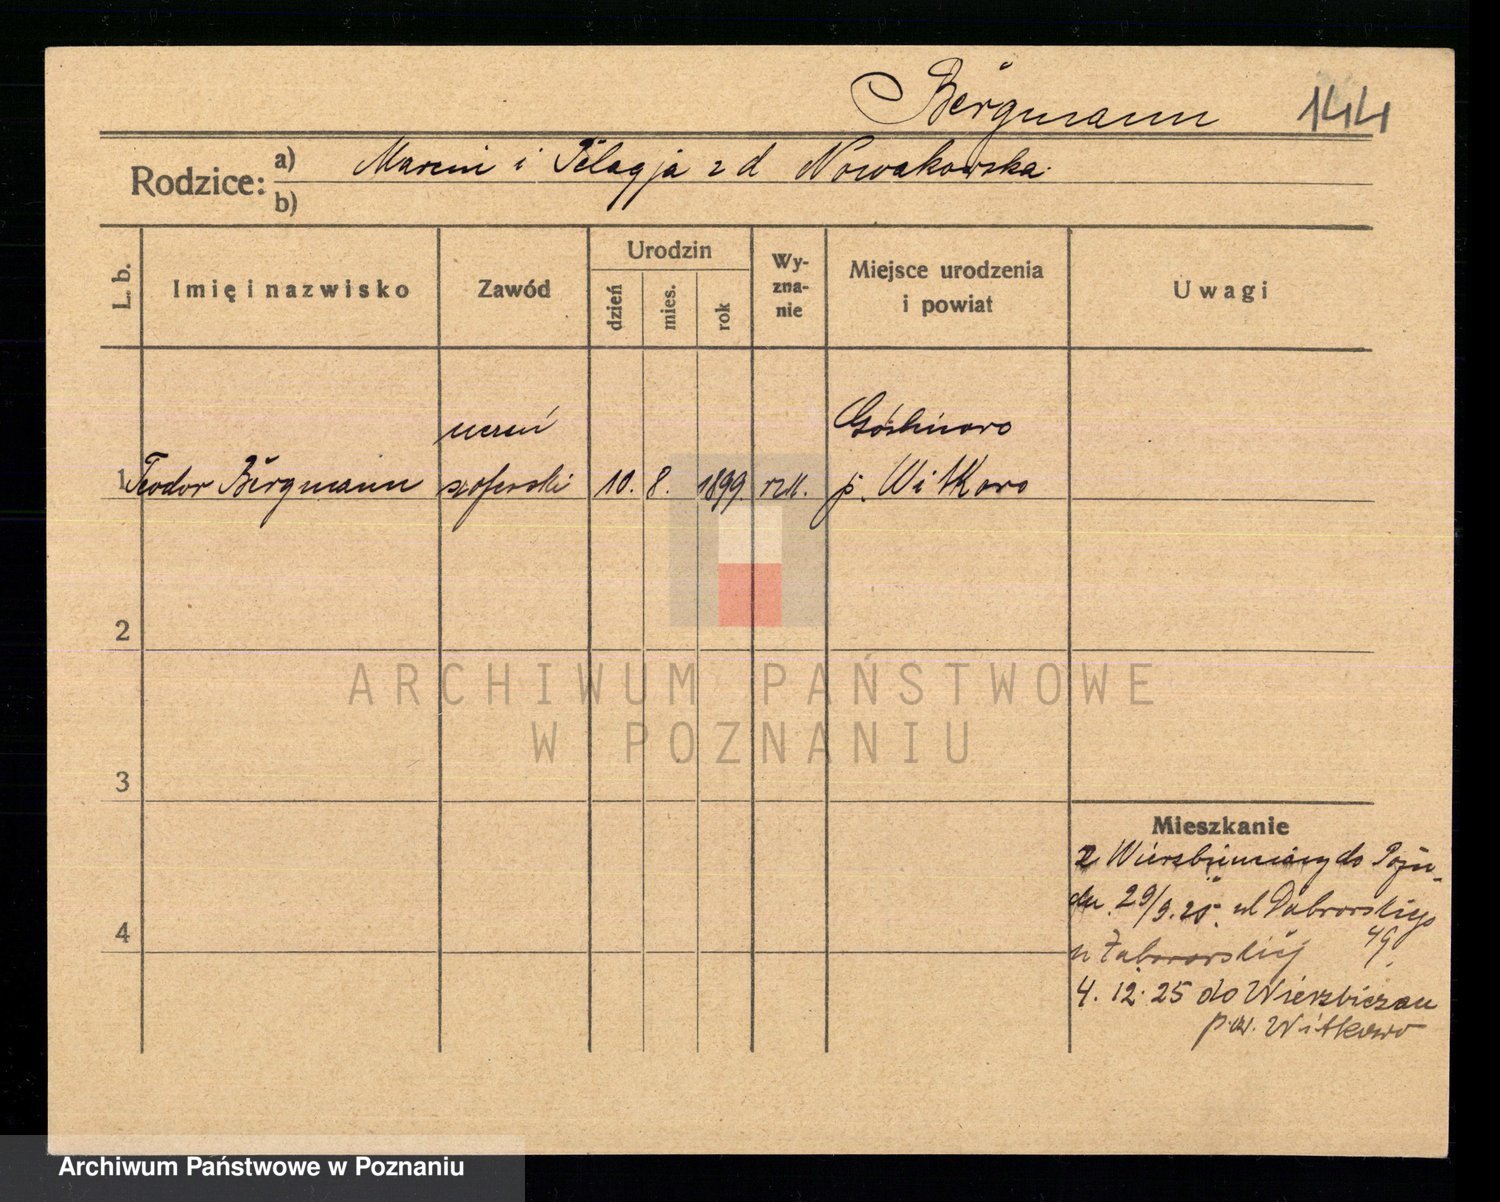 Bergmann 144
Rodzice: a) Marcin i Pelagja z d Nowakowska.
b)
L. b. Imię i nazwisko Zawód Urodzin dzień mies. rok Wy-zna-nie Miejsce urodzenia i powiat Uwagi
uczeń
1 Teodor Bergmann szoferski 10. 8. 1899 rzk. p. Witkowo
2
3
4
Mieszkanie
z do
29/9.25. ul Dąbrowskiego
49
u Zaborowskiej
4. 12. 25 do Wierzbiczan
pow. Witkowo
ARCHIWUM PAŃSTWOWE
W POZNANIU
Archiwum Państwowe w Poznaniu